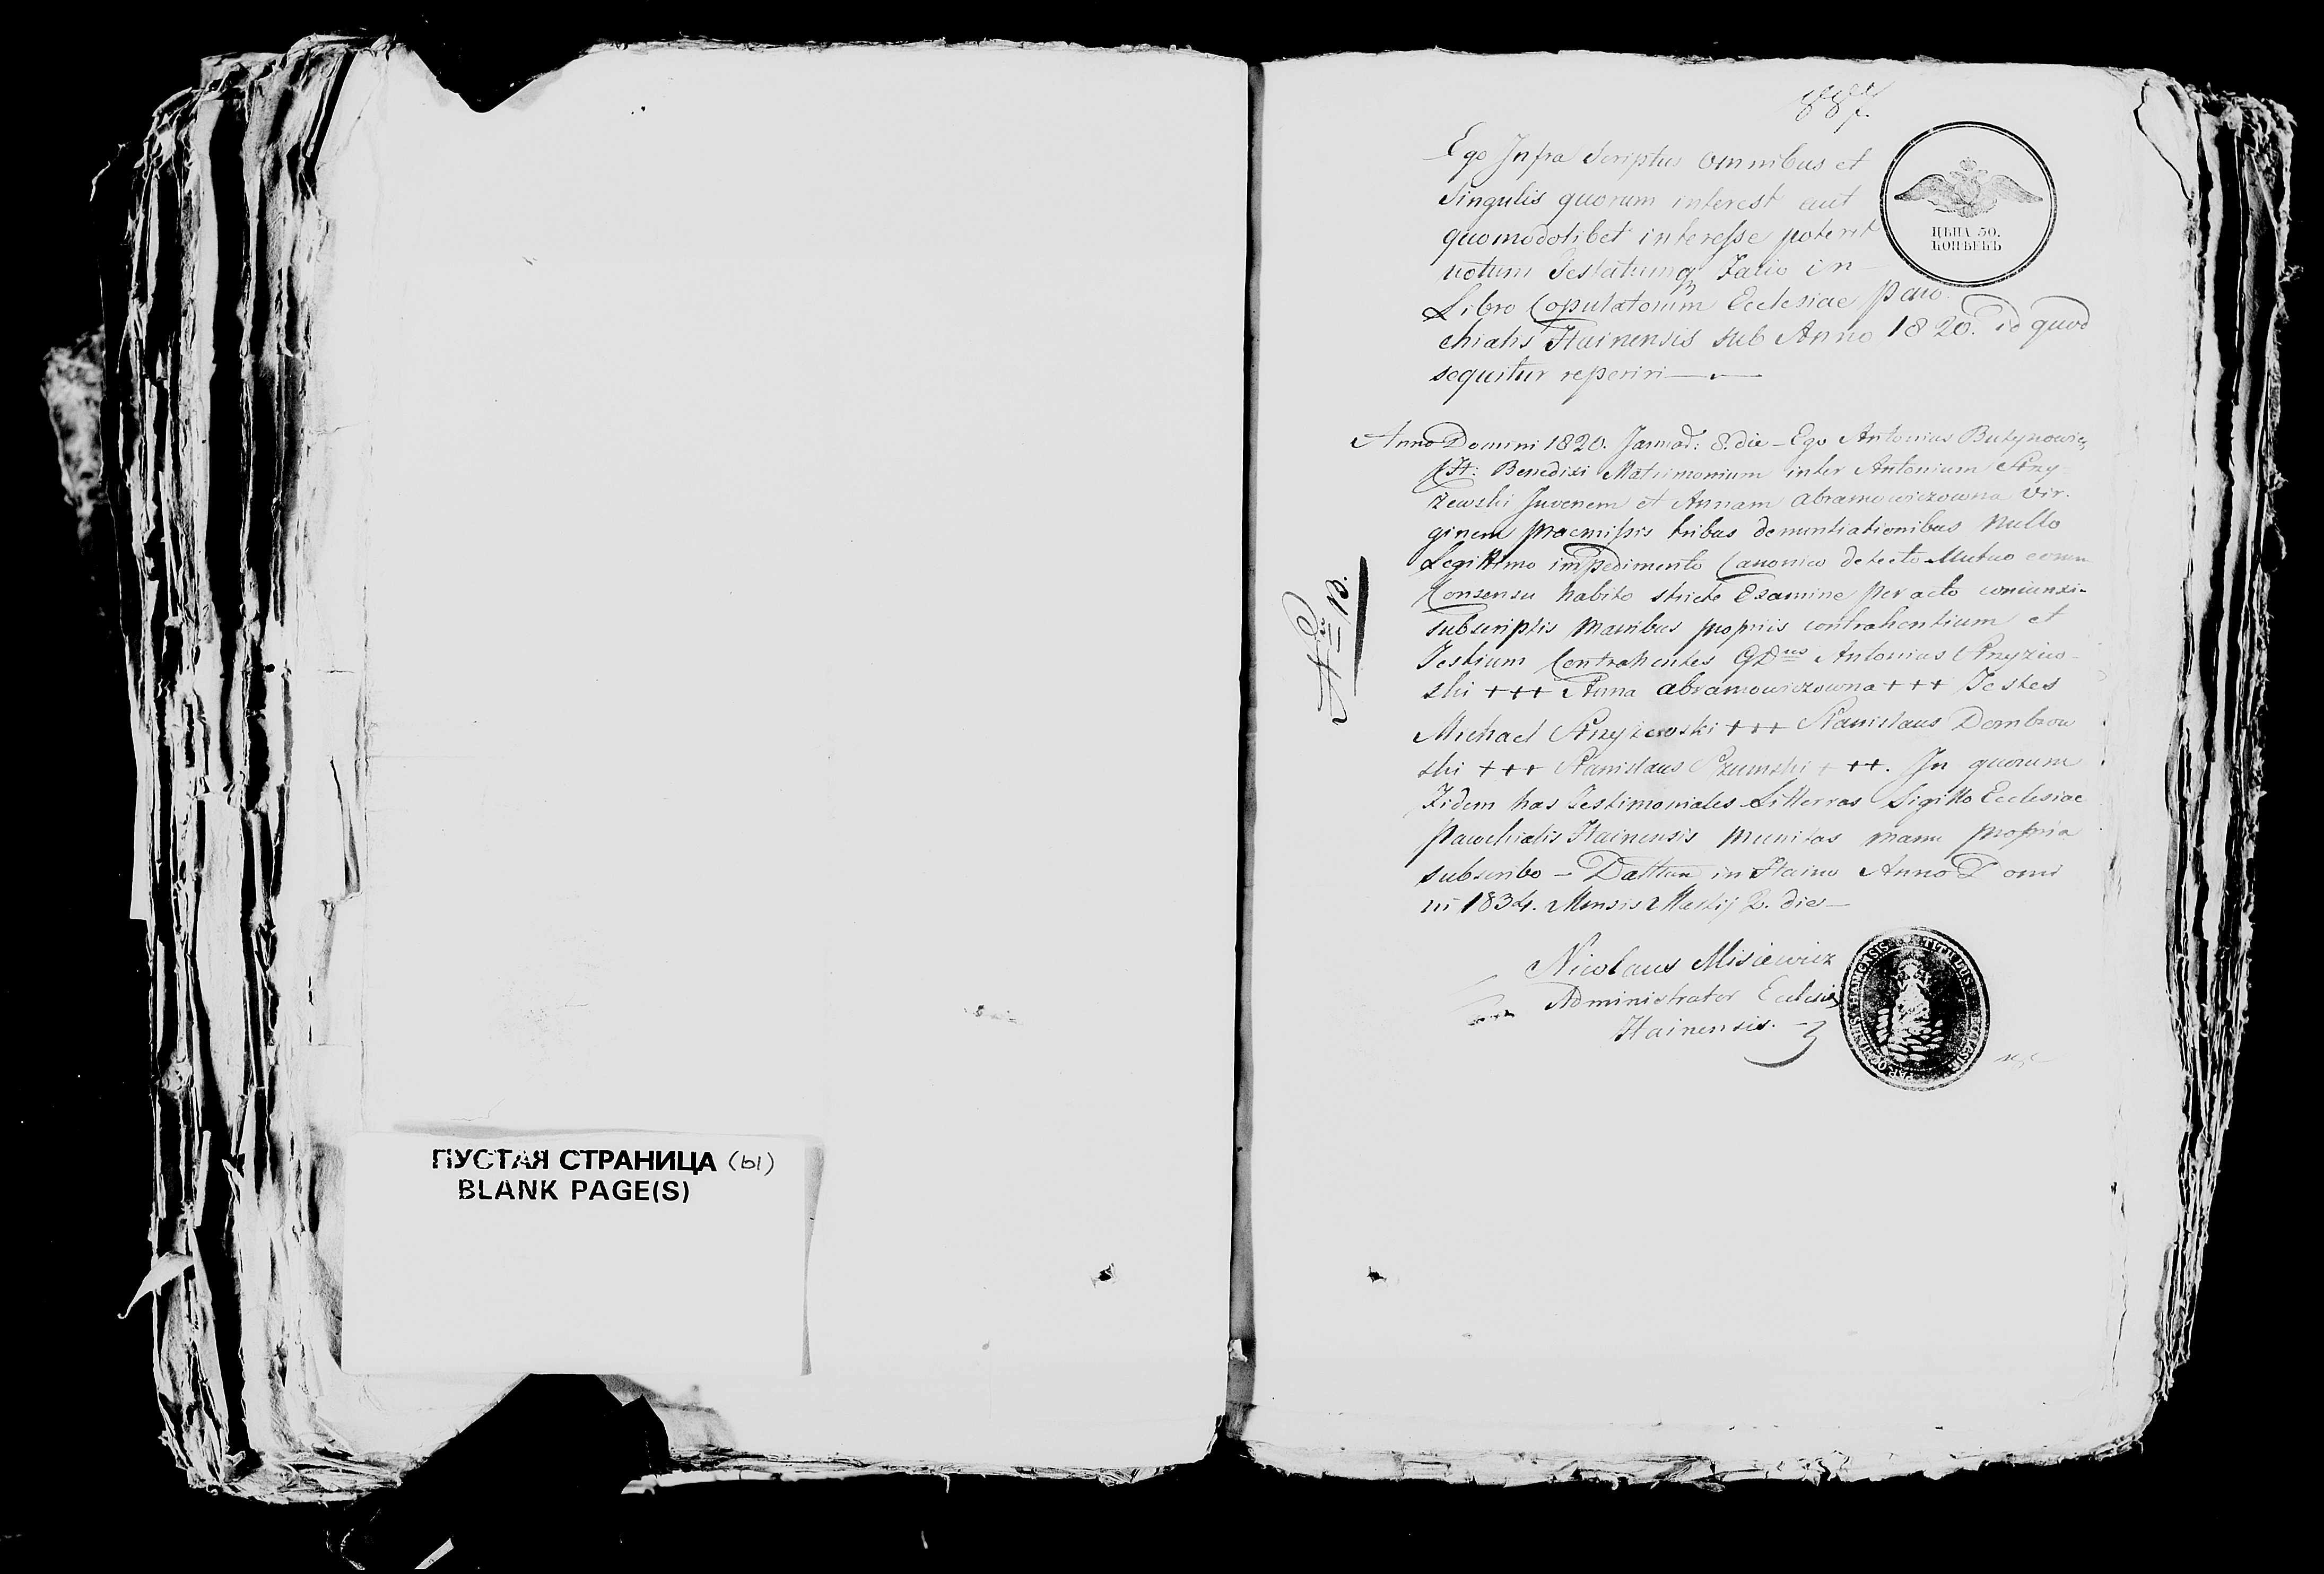 ПУСТАЯ СТРАНИЦА (ы)
BLANK PAGE(S)
887.
Ego Infra Scriptus Omnibus et
Singulis quorum interest aut
quomodolibet interesse poterit
notum Testatumq Facio in
Libro Copulatorum Ecclesiae Paro
chialis Hainensis sub Anno 1820. id quod
sequitur reperiri
ЦѢНА 50.
КОПѢЕКЪ
Anno Domini 1820. Januar: 8. die - Ego Antonius Butynowicz
Benedixi Matrimonium inter Antonium
Juvenem et Annam Abramowiczowna Vir.
ginem praemissis tribus denuntiationibus Nullo
Legittimo impedimento Canonico detecto Mutuo eorum
Consensu habito stricte Examine peracto coniunxi.
subscriptis Manibus propriis contrahentium et
Testium Contrahentes GD us Antonius
ski +++ Anna Abramowiczowna +++ Testes
Michael +++ Stanislaus Dombrow
ski +++ Stanislaus Szumski +++. In quorum
Fidem has Testimoniales Litterras Sigillo Ecclesiae
Parochialis Hainensis Munitas manu propria
subscribo - Dattum in Haino Anno Domi
ni 1834. Mensis Martij 2. die -
Nicolaus Misiewicz
Administrator Ecclesiae
Hainensis.